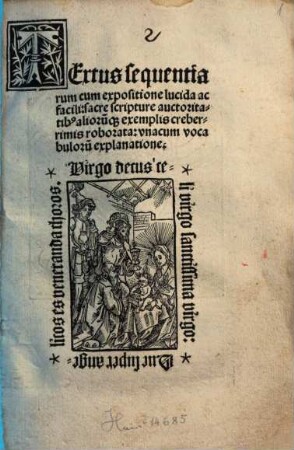 2
TExtus sequentia
rum cum expositione lucida ac
facili: sacre scripture auctorita-
tibꝰ aliorūqꝫ exemplis creber-
rimis roborata: vnacum voca
bulorū explanatione.
Virgo decus ce-
li virgo sanctissima virgo:
Que super ange-
licos es veneranda choros.
Hain 14685